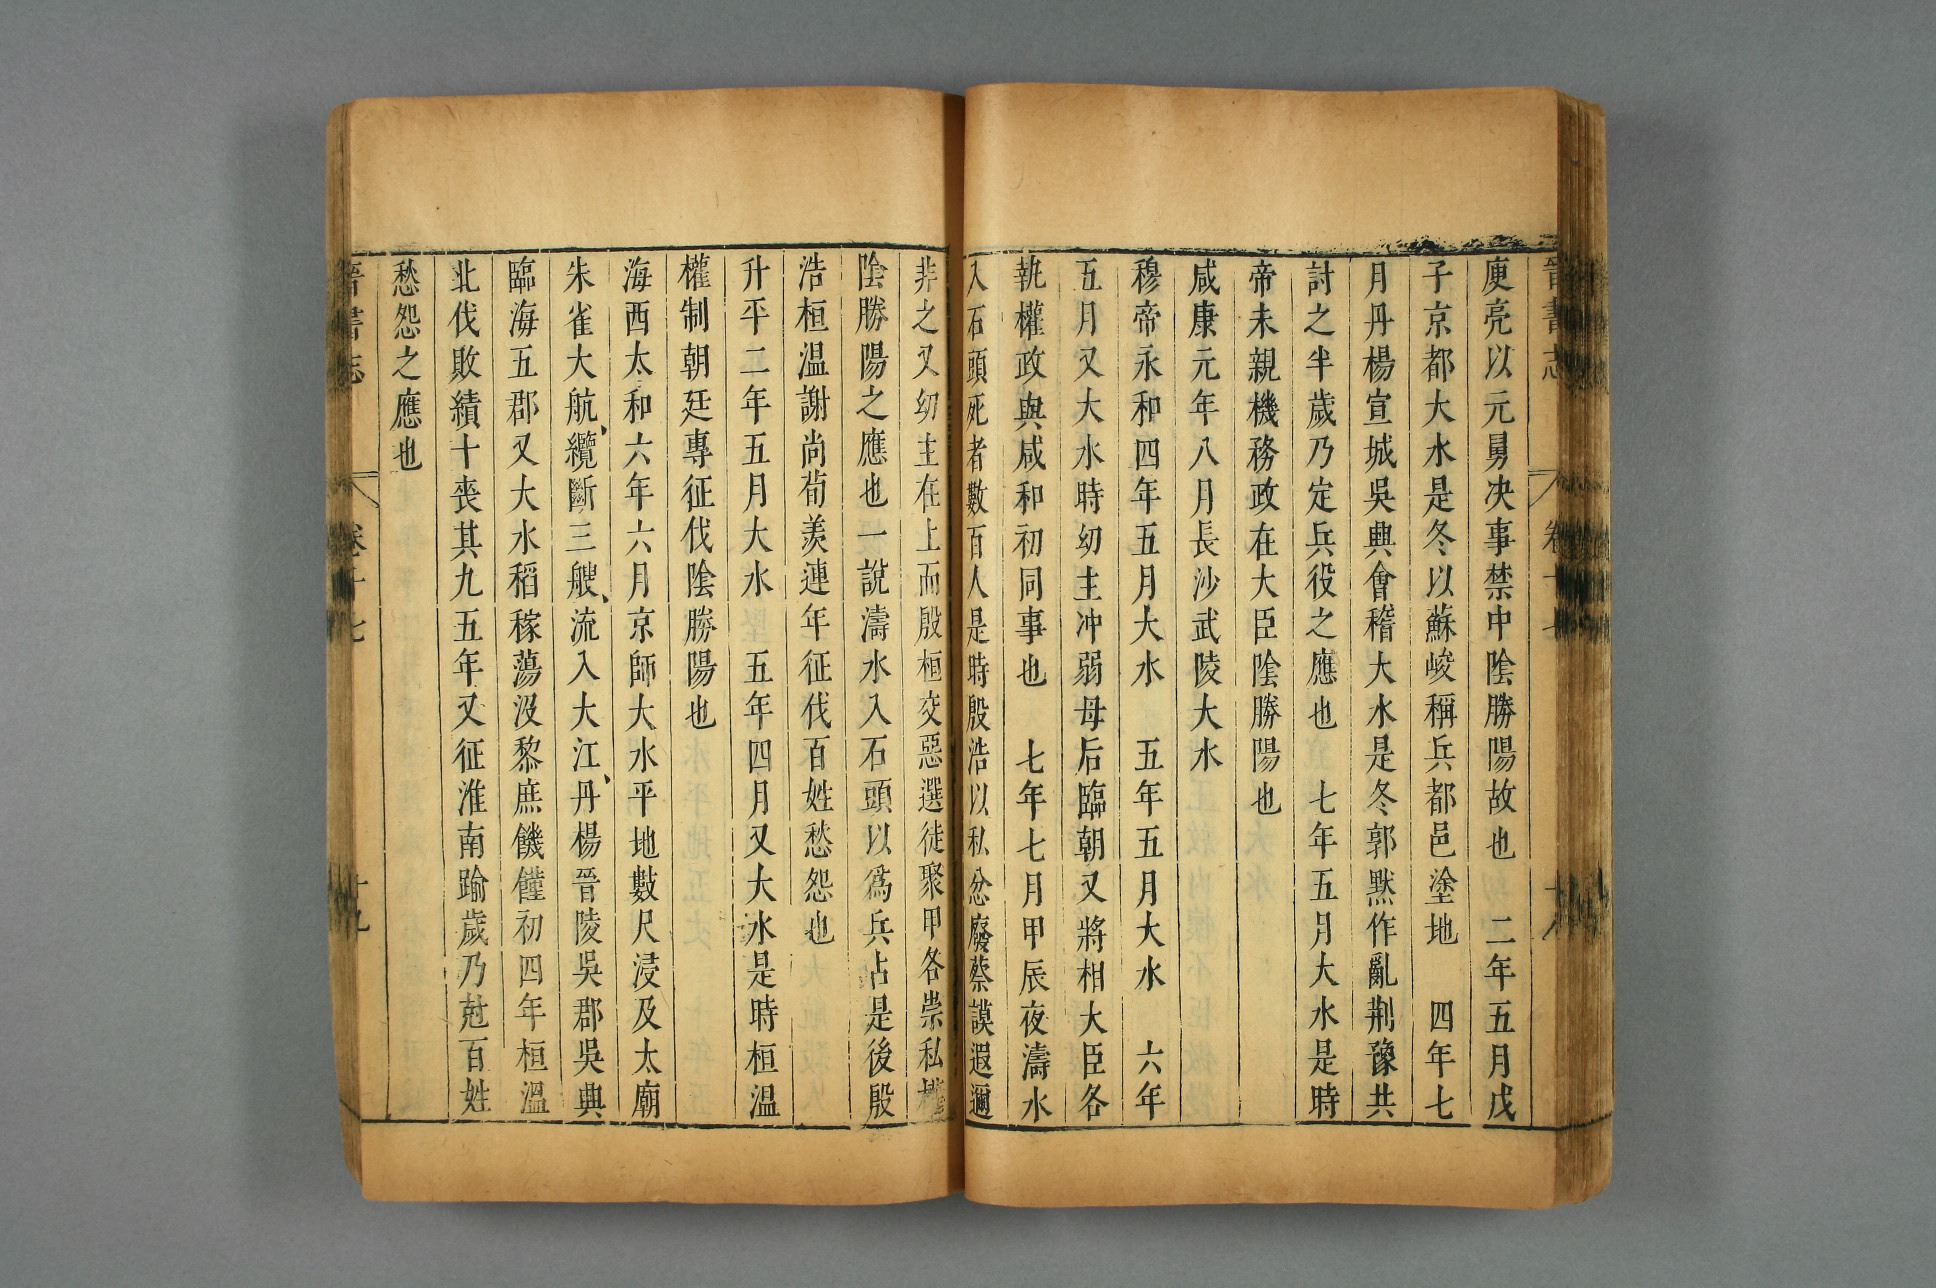 晉書志 卷十七
庾亮以元舅决事禁中陰勝陽故也　二年五月戊
子京都大水是冬以蘇峻稱兵都邑塗地　四年七
月丹楊宣城吳興會稽大水是冬郭默作亂荆豫共
討之半歲乃定兵役之應也　七年五月大水是時
帝未親機務政在大臣陰勝陽也
咸康元年八月長沙武陵大水
穆帝永和四年五月大水　五年五月大水　六年
五月又大水時幼主冲弱母后臨朝又將相大臣各
執權政與咸和初同事也　七年七月甲辰夜濤水
入石頭死者數百人是時殷浩以私忿廢蔡謨遐邇
非之又幼主在上而殷桓交惡選徒聚甲各崇私權
陰勝陽之應也一說濤水入石頭以爲兵占是後殷
浩桓溫謝尚荀羨連年征伐百姓愁怨也
升平二年五月大水　五年四月又大水是時桓溫
權制朝廷專征伐陰勝陽也
海西太和六年六月京師大水平地數尺浸及太廟
朱雀大航纜斷三艘流入大江丹楊晉陵吳郡吳興
臨海五郡又大水稻稼蕩没黎庶饑饉初四年桓溫
北伐敗績十喪其九五年又征淮南踰歲乃尅百姓
愁怨之應也
晉書志 卷十七 十九